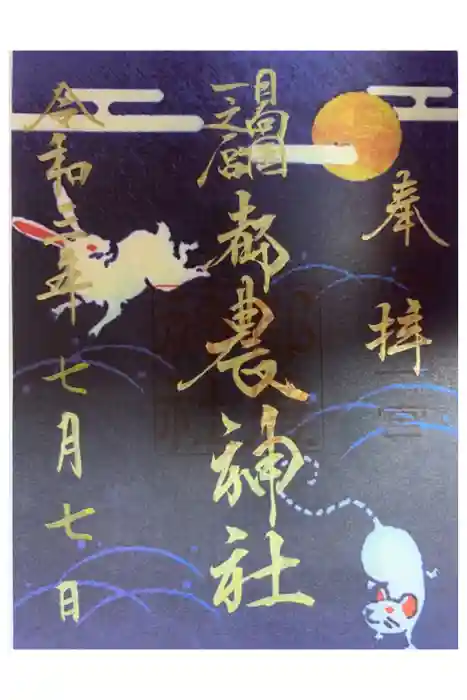 奉拝
日向國
一之宮
都農神社
令和三年七月七日